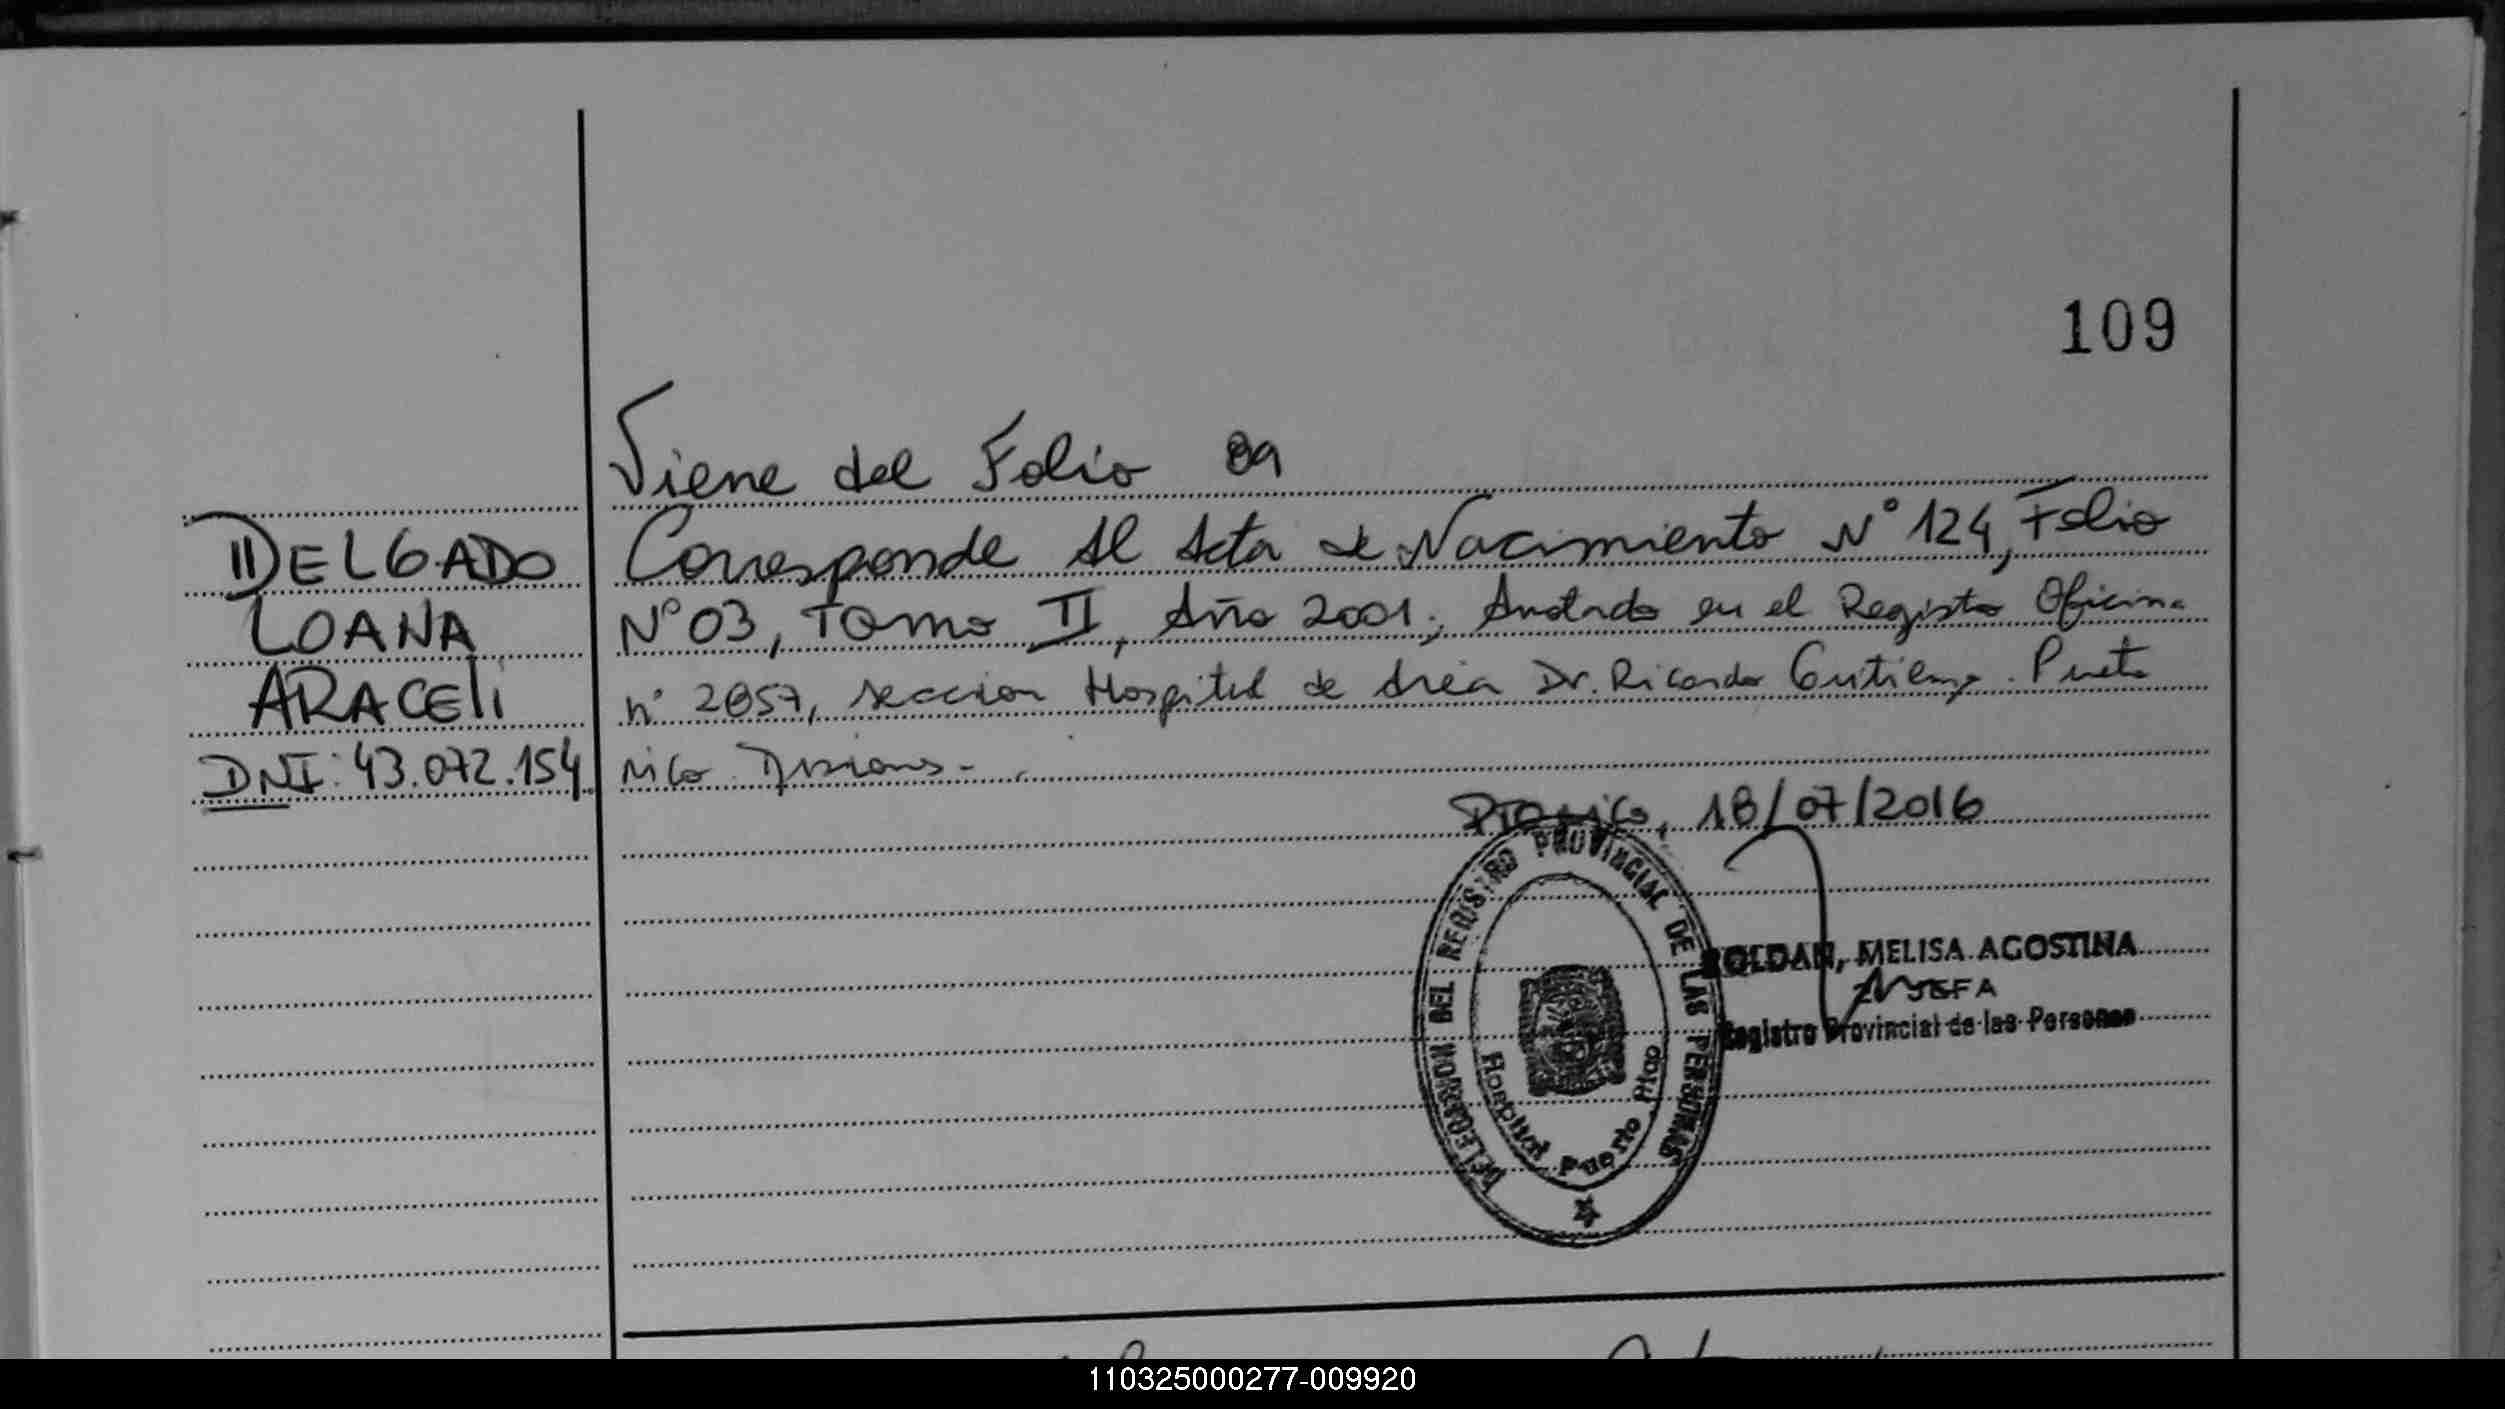 109
Viene del Folio 09
DELGADO
LOANA
ARACELI
DNI: 43.072.154
Corresponde al Acta de Nacimiento N° 124, Folio
N° 03, Tomo II, Año 2001; Anotado en el Registro Oficina
n° 2057, sección Hospital de Area Dr. Ricardo Gutierrez. Puerto
rico Misiones.-
Pto Rico, 18/07/2016
DELEGACION DEL REGISTRO PROVINCIAL DE LAS PERSONAS
Hospital Puerto Rico
ROLDAN, MELISA AGOSTINA
JEFA
Registro Provincial de las Personas
110325000277-009920